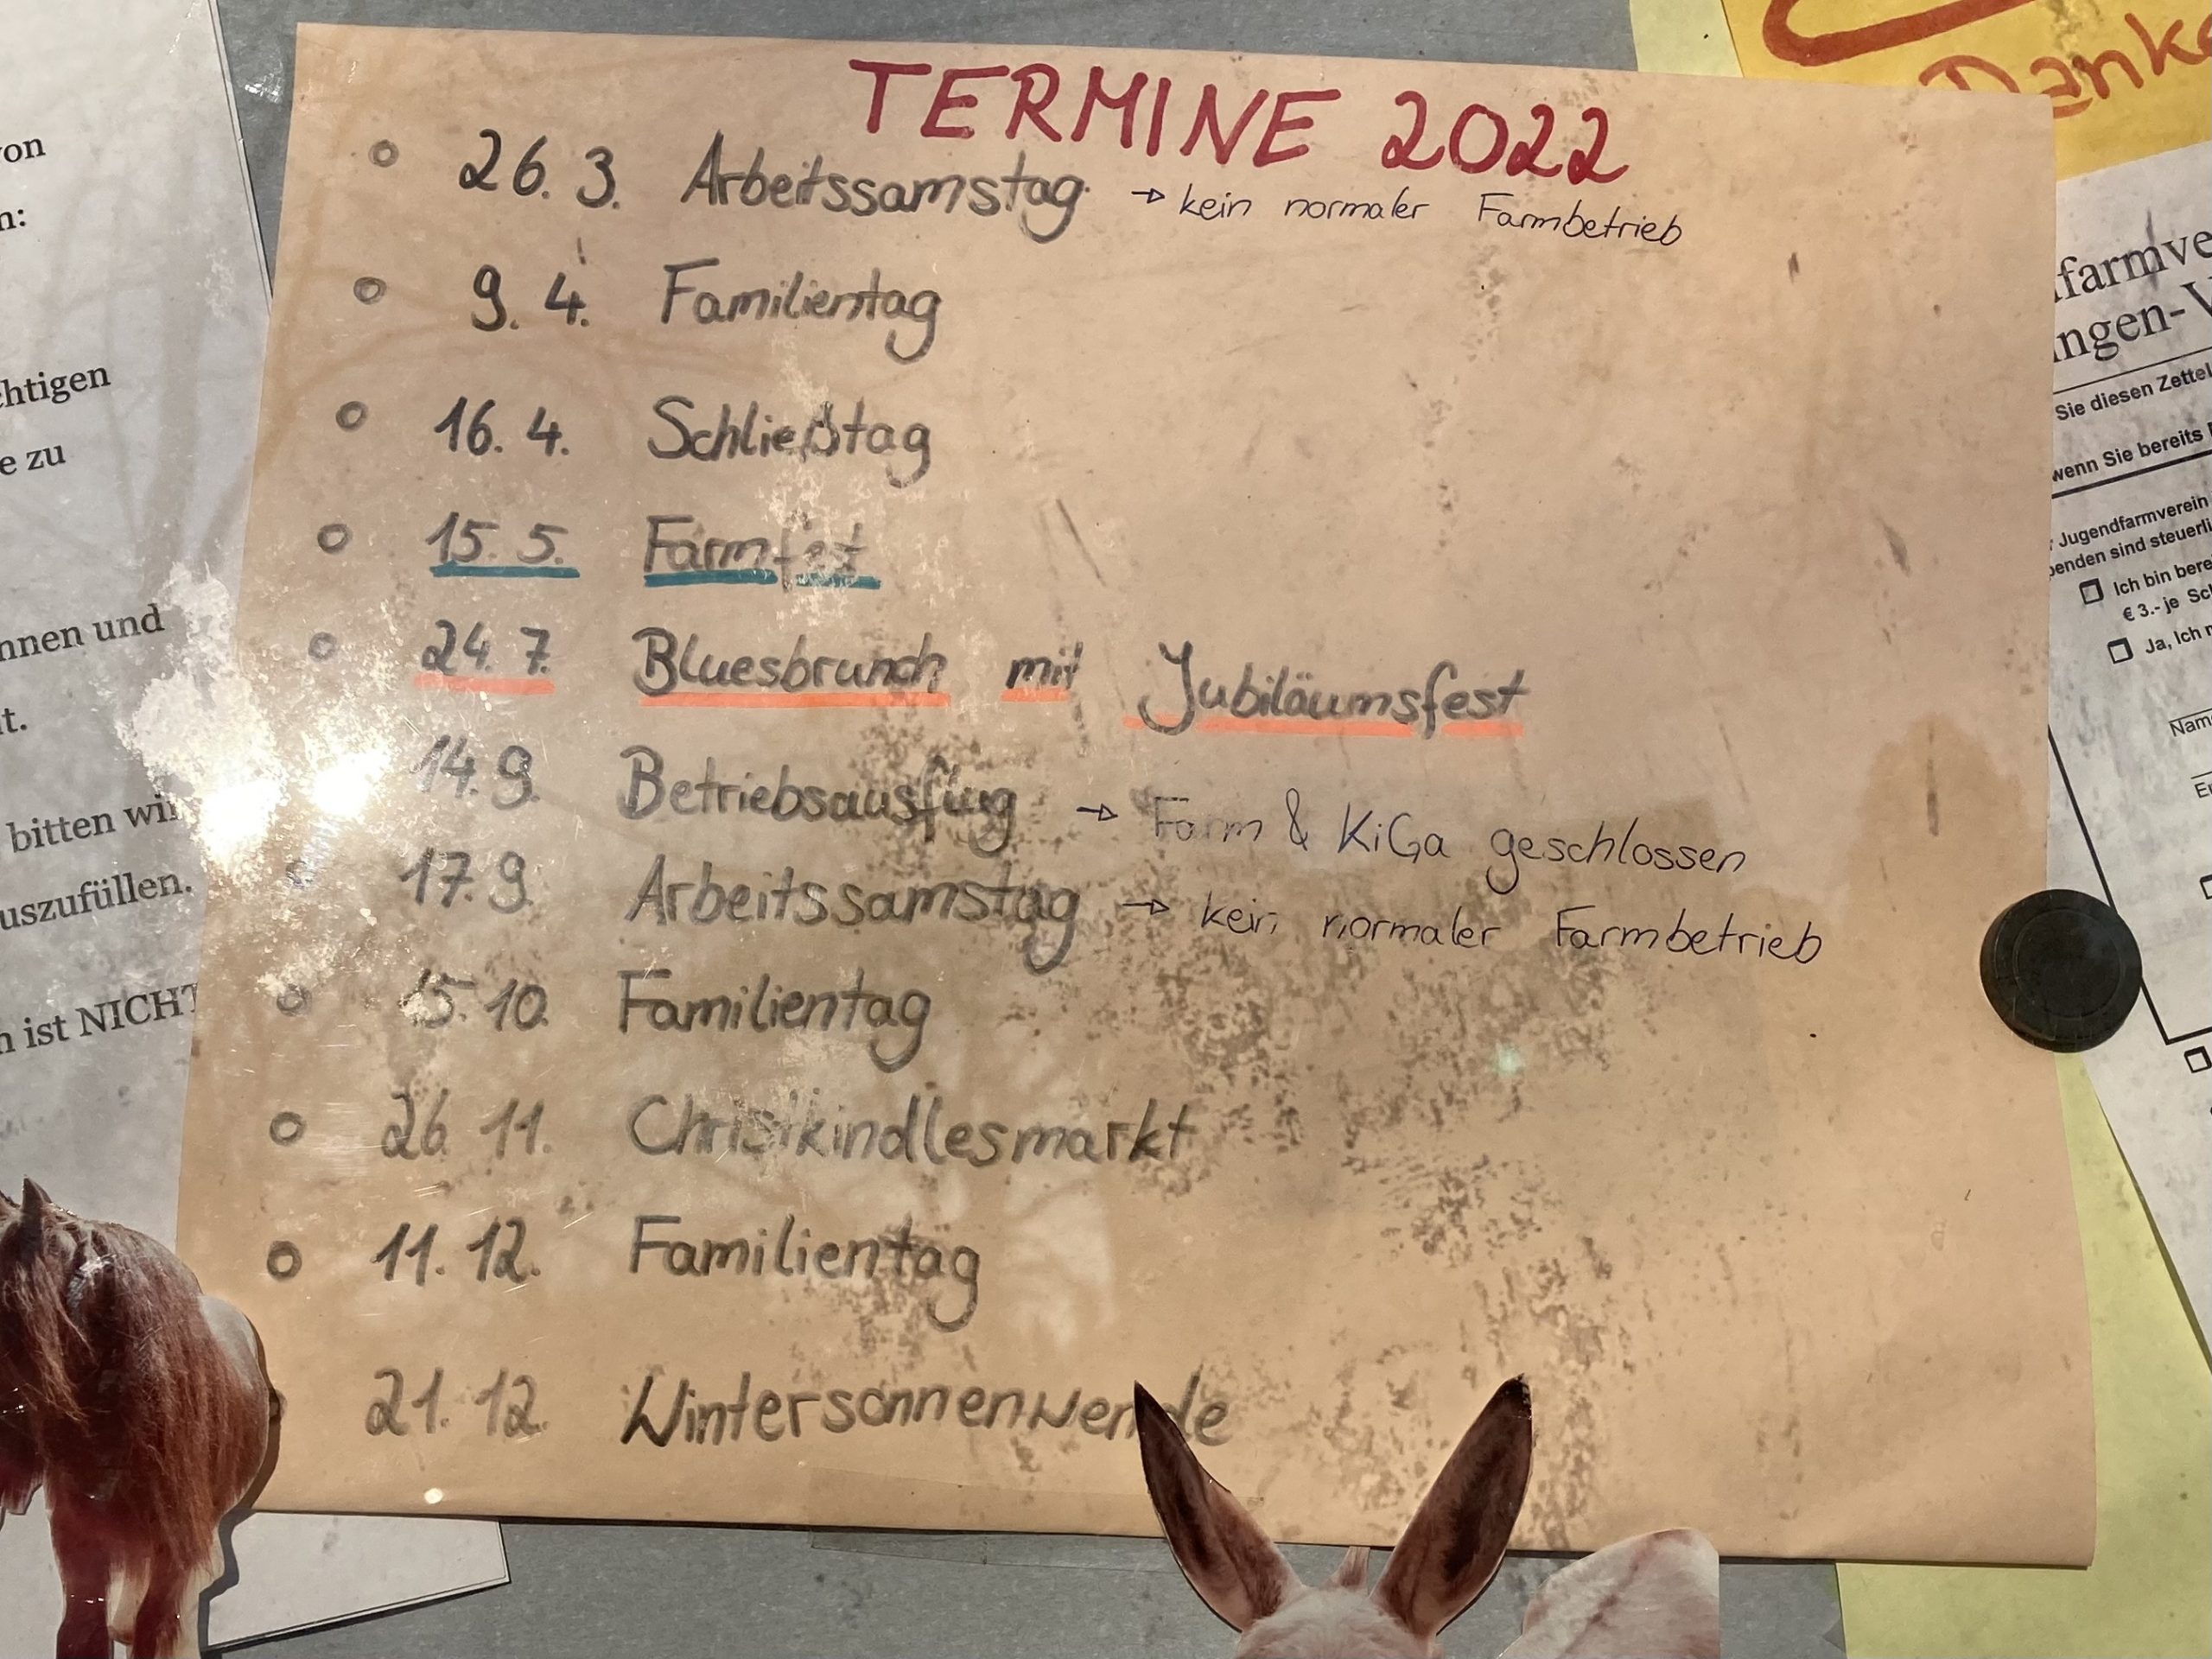 TERMINE 2022
26. 3. Arbeitssamstag → kein normaler Farmbetrieb
9. 4. Familientag
16. 4. Schließtag
15. 5. Farmfest
24. 7. Bluesbrunch mit Jubiläumsfest
14. 9. Betriebsausflug → Farm & KiGa geschlossen
17. 9. Arbeitssamstag → kein normaler Farmbetrieb
15. 10. Familientag
26. 11. Christkindlesmarkt
11. 12. Familientag
21. 12. Wintersonnenwende
von
n:
chtigen
e zu
nnen und
t.
bitten wir
uszufüllen.
n ist NICHT
Danke
farmve
ngen-V
Sie diesen Zettel
wenn Sie bereits
Jugendfarmverein
penden sind steuerli
Ich bin bere
€ 3.- je Sch
Ja, Ich m
Nam